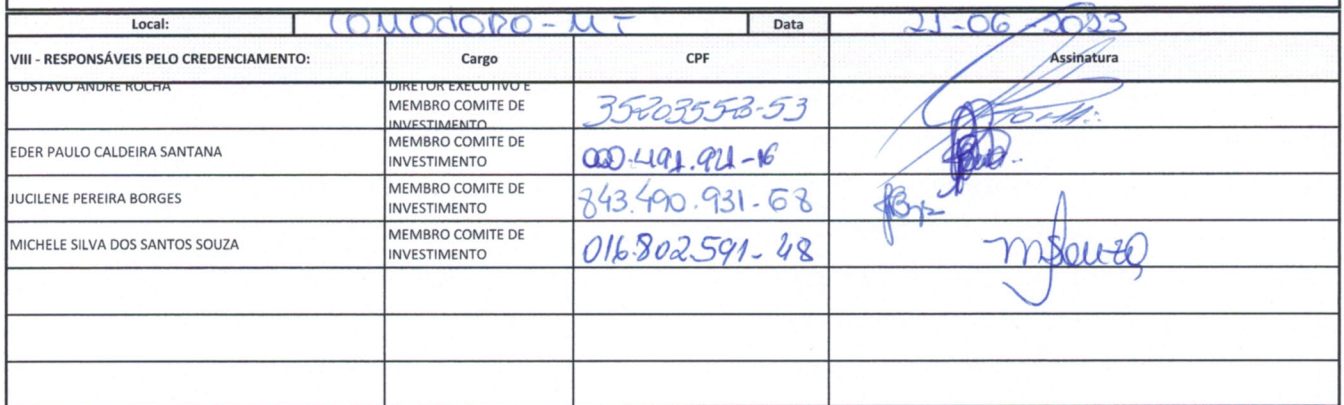 Local: COMODORO - MT Data 21-06-2023
VIII - RESPONSÁVEIS PELO CREDENCIAMENTO: Cargo CPF Assinatura
GUSTAVO ANDRE ROCHA DIRETOR EXECUTIVO E
MEMBRO COMITE DE
INVESTIMENTO 35203553-53
EDER PAULO CALDEIRA SANTANA MEMBRO COMITE DE
INVESTIMENTO 000.491.921-16
JUCILENE PEREIRA BORGES MEMBRO COMITE DE
INVESTIMENTO 843.490.931-68
MICHELE SILVA DOS SANTOS SOUZA MEMBRO COMITE DE
INVESTIMENTO 016.802.591-48 MSouza